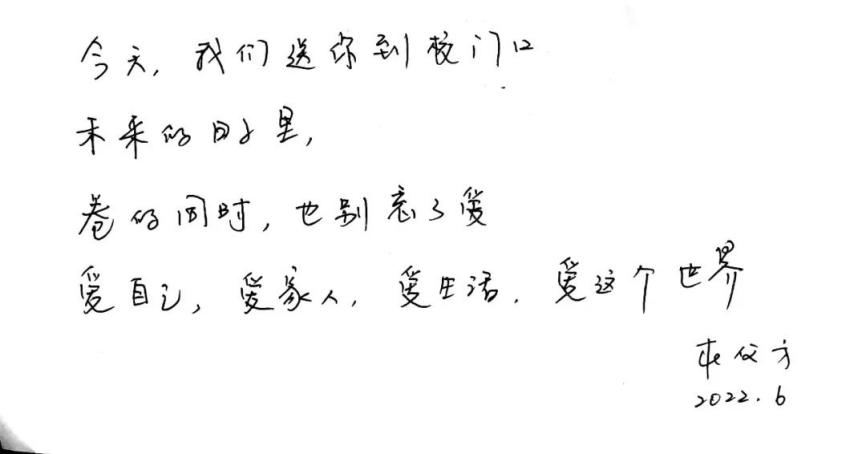 今天,我们送你到校门口
未来的日子里,
卷的同时,也别忘了爱
爱自己,爱家人,爱生活,爱这个世界
2022.6